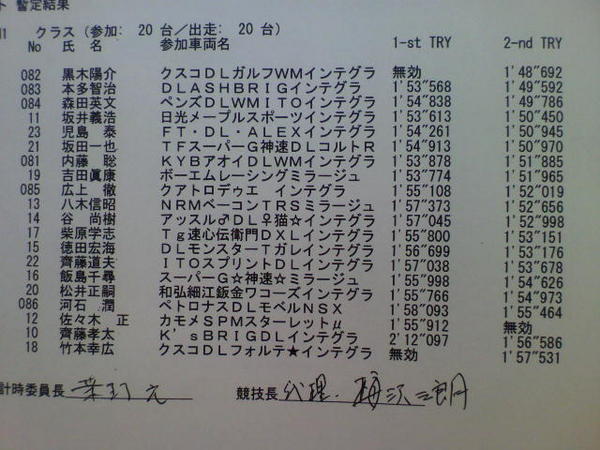 ト 暫定結果
クラス (参加: 20 台/出走: 20 台)
No 氏 名 参加車両名 1-st TRY 2-nd TRY
082 黒木陽介 クスコDLガルフWMインテグラ 無効 1'48"692
083 本多智治 DLASHBRIGインテグラ 1'53"568 1'49"592
084 森田英文 ペンズDLWMITOインテグラ 1'54"838 1'49"786
11 坂井義浩 日光メープルスポーツインテグラ 1'53"613 1'50"450
23 児島 泰 FT・DL・ALEXインテグラ 1'54"261 1'50"945
21 坂田一也 TFスーパーG神速DLコルトR 1'54"913 1'50"970
081 内藤 聡 KYBアオイDLWMインテグラ 1'53"878 1'51"885
19 吉田眞康 ボーエムレーシングミラージュ 1'53"774 1'51"965
085 広上 徹 クアトロデゥエ インテグラ 1'55"108 1'52"019
13 八木信昭 NRMベーコンTRSミラージュ 1'57"373 1'52"656
14 谷 尚樹 アッスル♂DL♀猫☆インテグラ 1'57"045 1'52"998
17 柴原学志 Tg速心伝衛門DXLインテグラ 1'55"800 1'53"151
15 徳田宏海 DLモンスターTガレインテグラ 1'56"699 1'53"176
22 齊藤道夫 ITOスプリントDLインテグラ 1'57"038 1'53"678
16 飯島千尋 スーパーG☆神速☆ミラージュ 1'55"998 1'54"626
20 松井正嗣 和弘細江鈑金ワコーズインテグラ 1'55"766 1'54"973
086 河石 潤 ペトロナスDLモベルNSX 1'58"093 1'55"464
12 佐々木 正 カモメSPMスターレットμ 1'55"912 無効
10 齊藤孝太 K'sBRIGDLインテグラ 2'12"097 1'56"586
18 竹本幸広 クスコDLフォルテ★インテグラ 無効 1'57"531
計時委員長 競技長 代理.